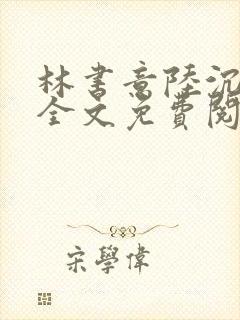 林書意陸沉
全文免費閱
宋學偉